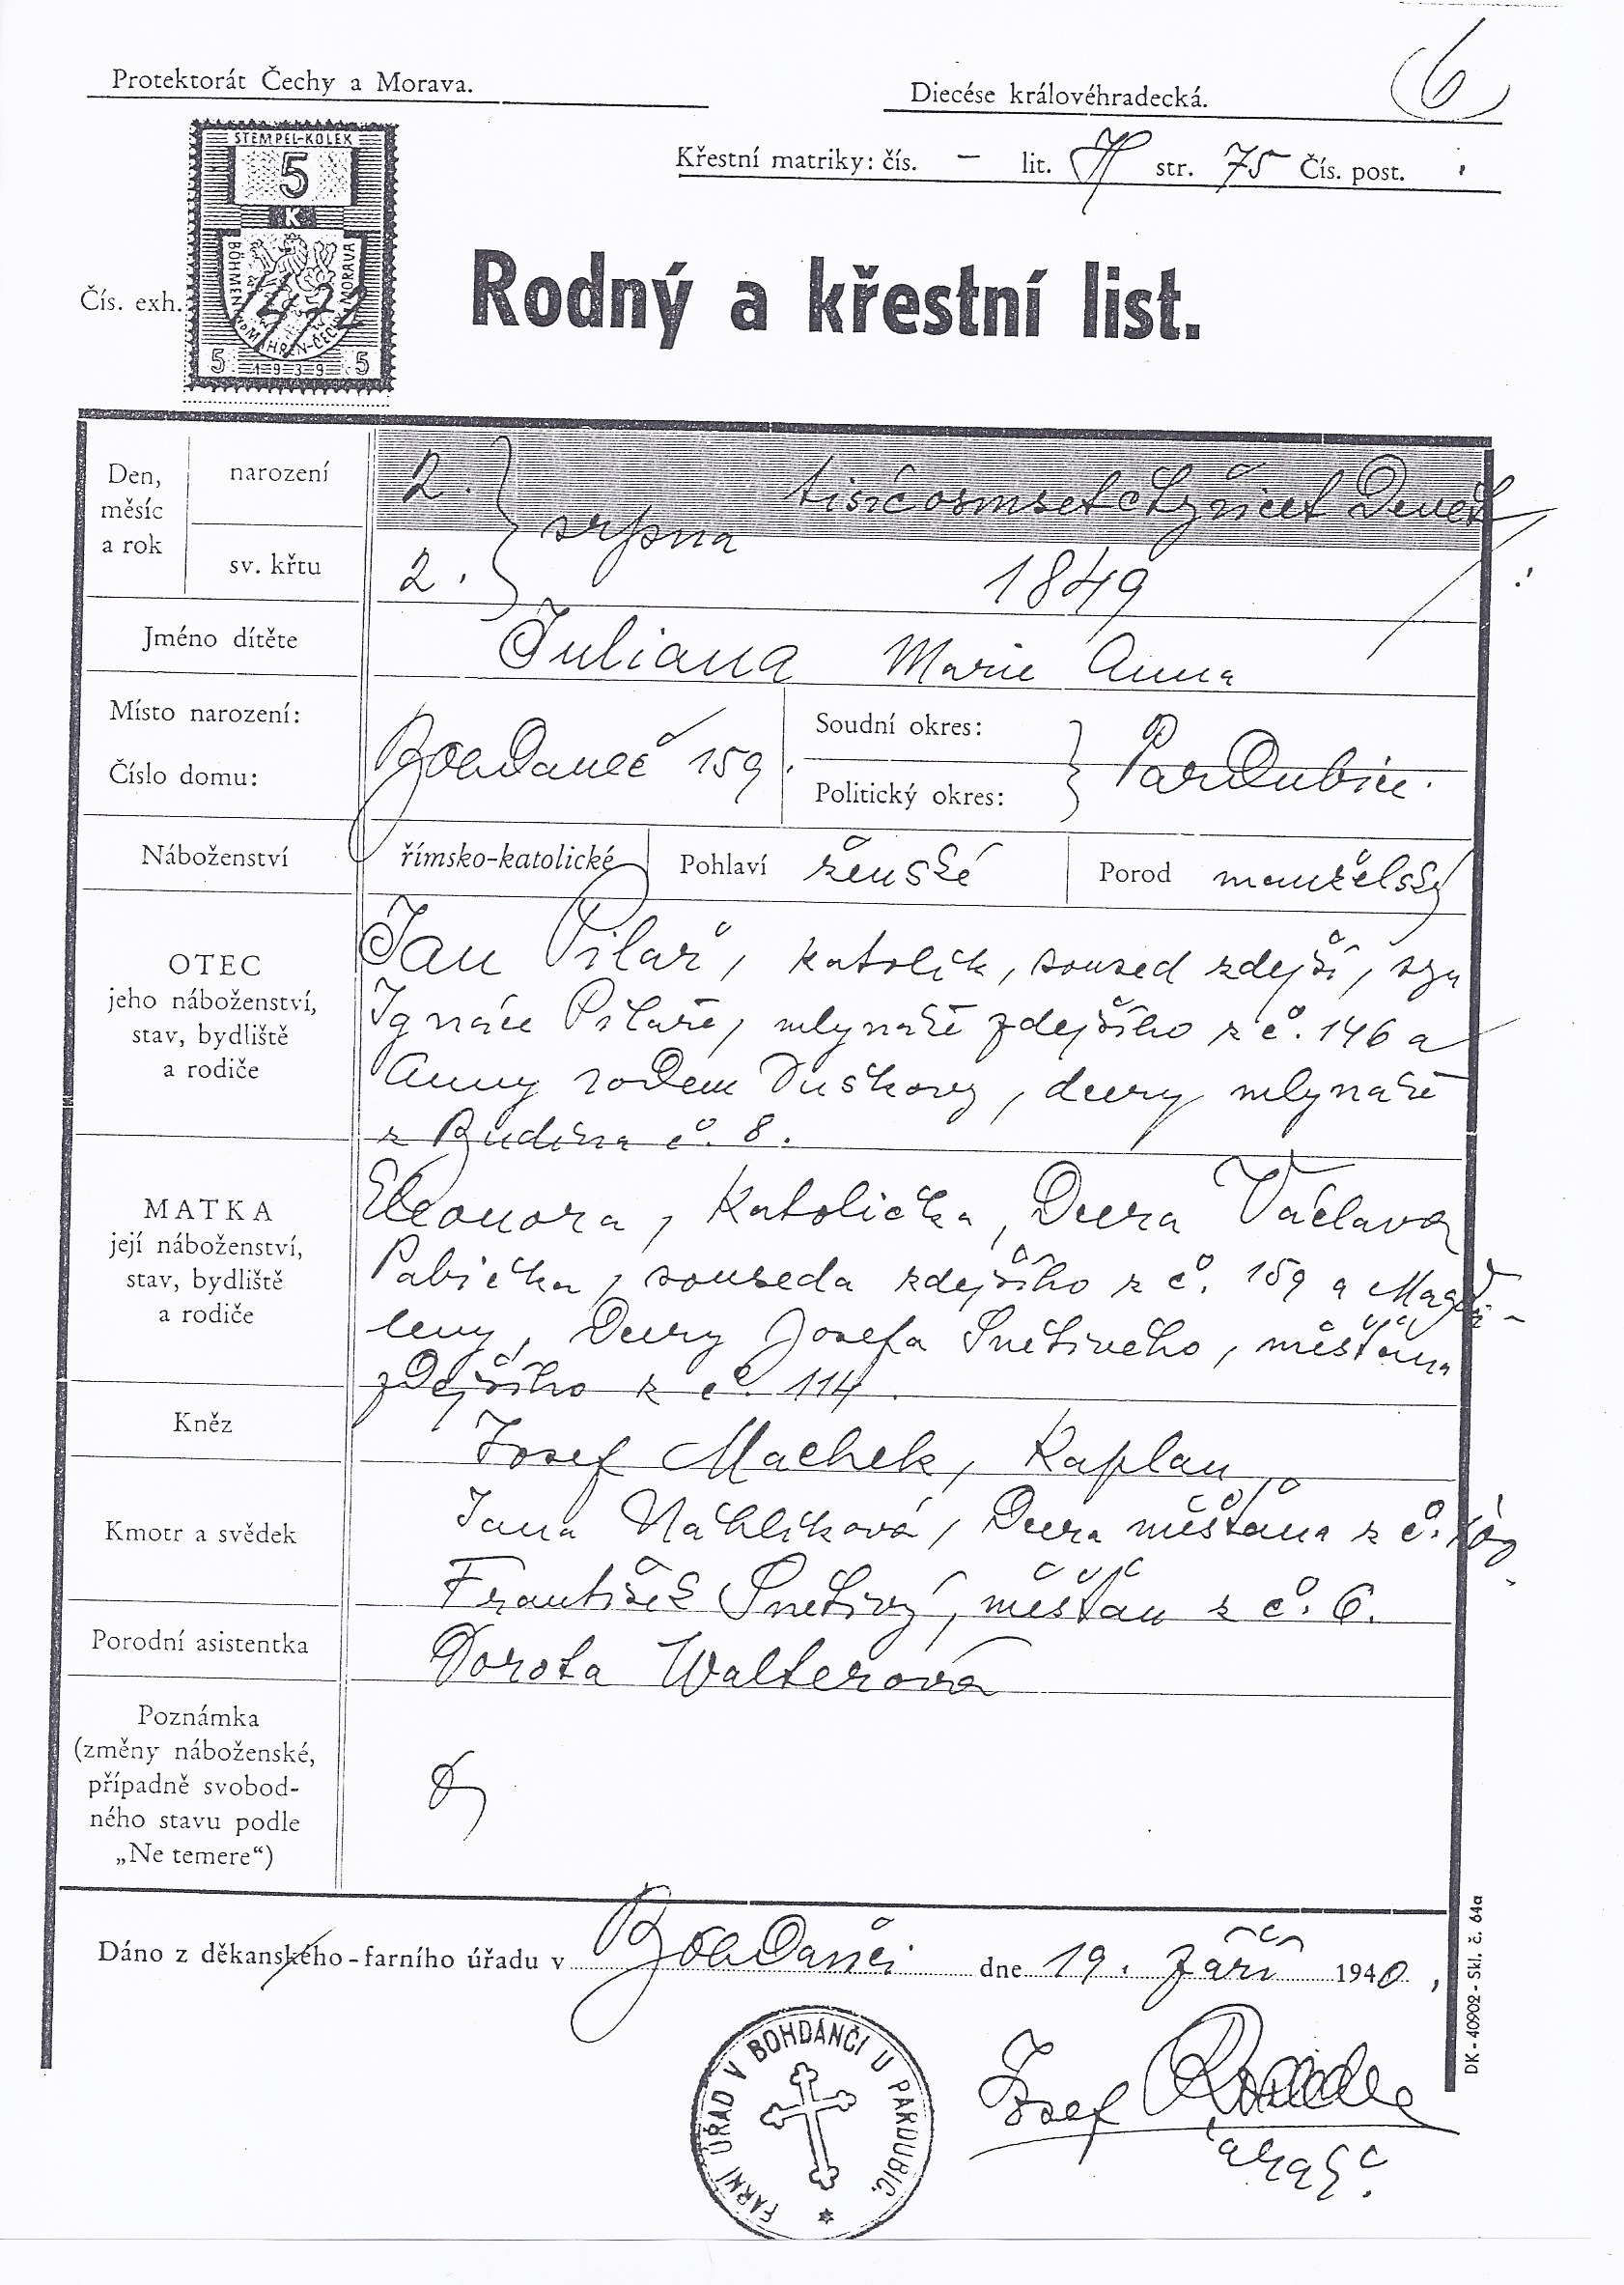 6
Protektorát Čechy a Morava.
Diecése královéhradecká.
Křestní matriky: čís. — lit. str. 75 Čís. post.
STEMPEL-KOLEK
5
K
BÖHMEN U. MÄHREN-ČECHY A MORAVA
5 1939 5
Čís. exh. 1472
Rodný a křestní list.
Den, měsíc a rok
narození
2. srpna tisícosmsetčtyřicet Devět
sv. křtu
2. 1849
Jméno dítěte
Juliana Marie Anna
Místo narození:
Číslo domu:
Bohdaneč 159.
Soudní okres:
Politický okres:
Pardubice.
Náboženství
římsko-katolické
Pohlaví
ženské
Porod
manželský
OTEC
jeho náboženství,
stav, bydliště
a rodiče
Jan Pilař, katolík, soused zdejší, syn
Ignáce Pilaře, mlynaře zdejšího z č. 146 a
Anny rodem Duškovy, dcery mlynaře
z č. 8.
MATKA
její náboženství,
stav, bydliště
a rodiče
Eleonora, Katolička, Dcera Václava
Pabička, souseda zdejšího z č. 159 a Magda-
leny, Dcery Josefa Snětivého, měšťana
zdejšího z č. 114.
Kněz
Josef Machek, Kaplan
Kmotr a svědek
Jana Náhlíková, Dcera měšťana z č.
František Snětivý, měšťan z č. 6.
Porodní asistentka
Dorota Walterová
Poznámka
(změny náboženské,
případně svobod-
ného stavu podle
„Ne temere“)
Dáno z děkanského-farního úřadu v Bohdanči dne 19. září 1940.
FARNÍ ÚŘAD V BOHDANČI U PARDUBIC.
Josef
DK - 40902 - Skl. č. 64a